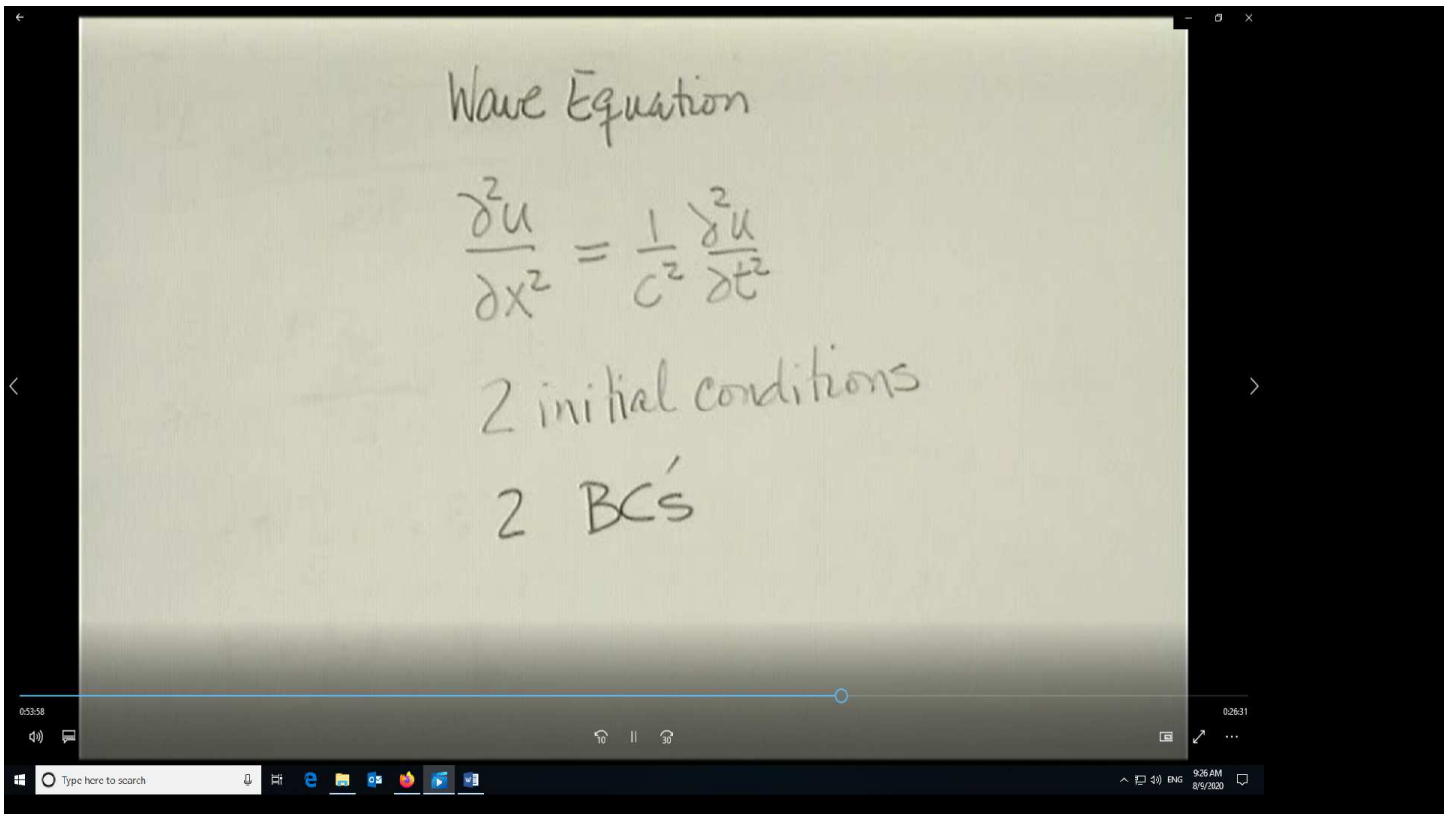 Wave Equation
∂²u/∂x² = 1/c² ∂²u/∂t²
2 initial conditions
2 BC's
0:53:58
0:26:31
10
30
Type here to search
ENG
9:26 AM
8/9/2020